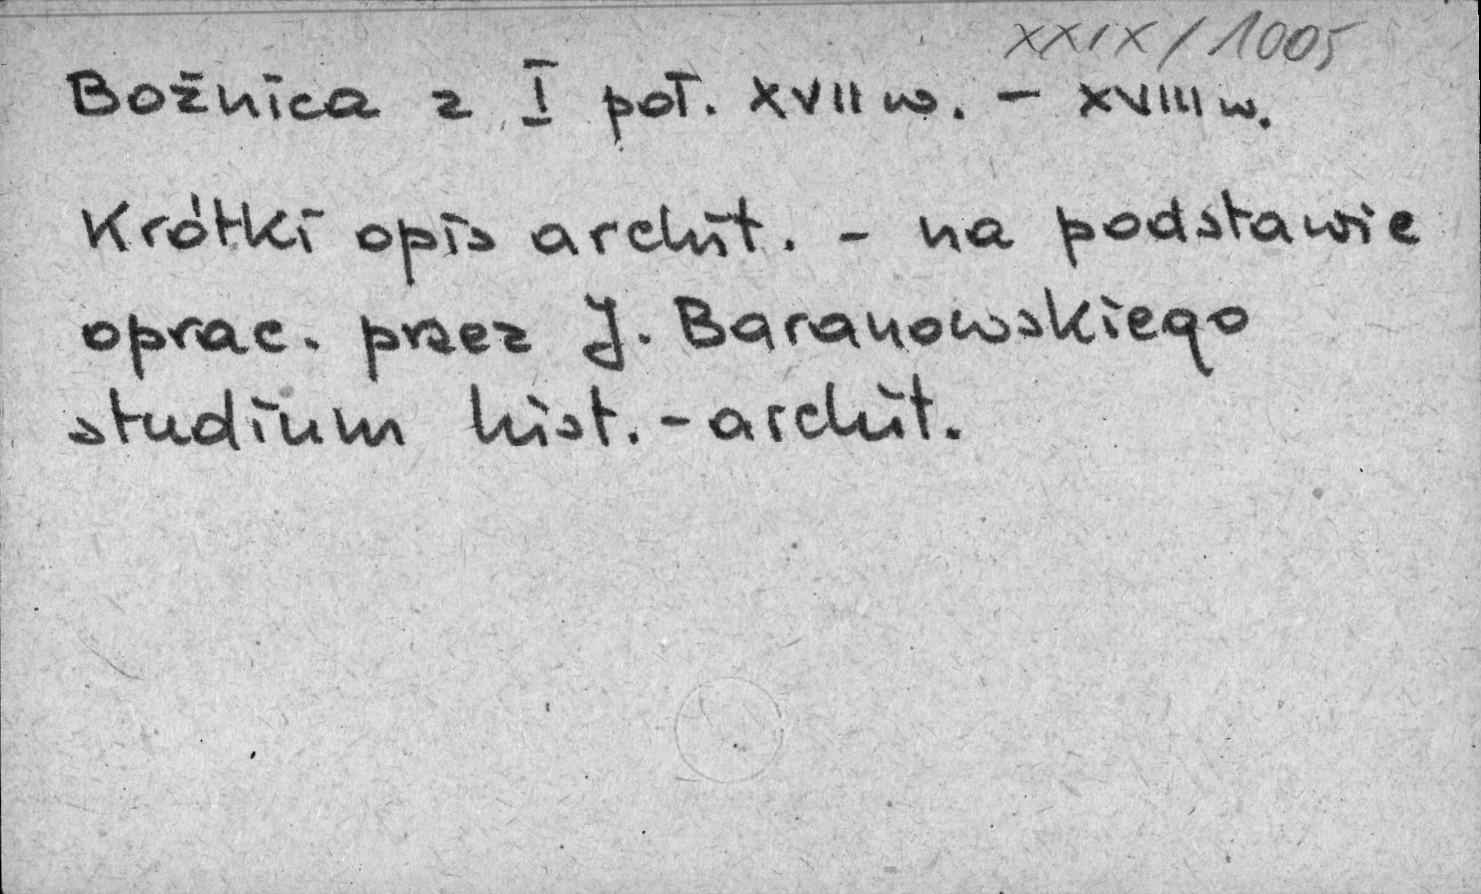 XXIX/1005
Bożnica z I poł. XVII w. – XVIII w.
Krótki opis archit. – na podstawie
oprac. przez J. Baranowskiego
studium hist.-archit.